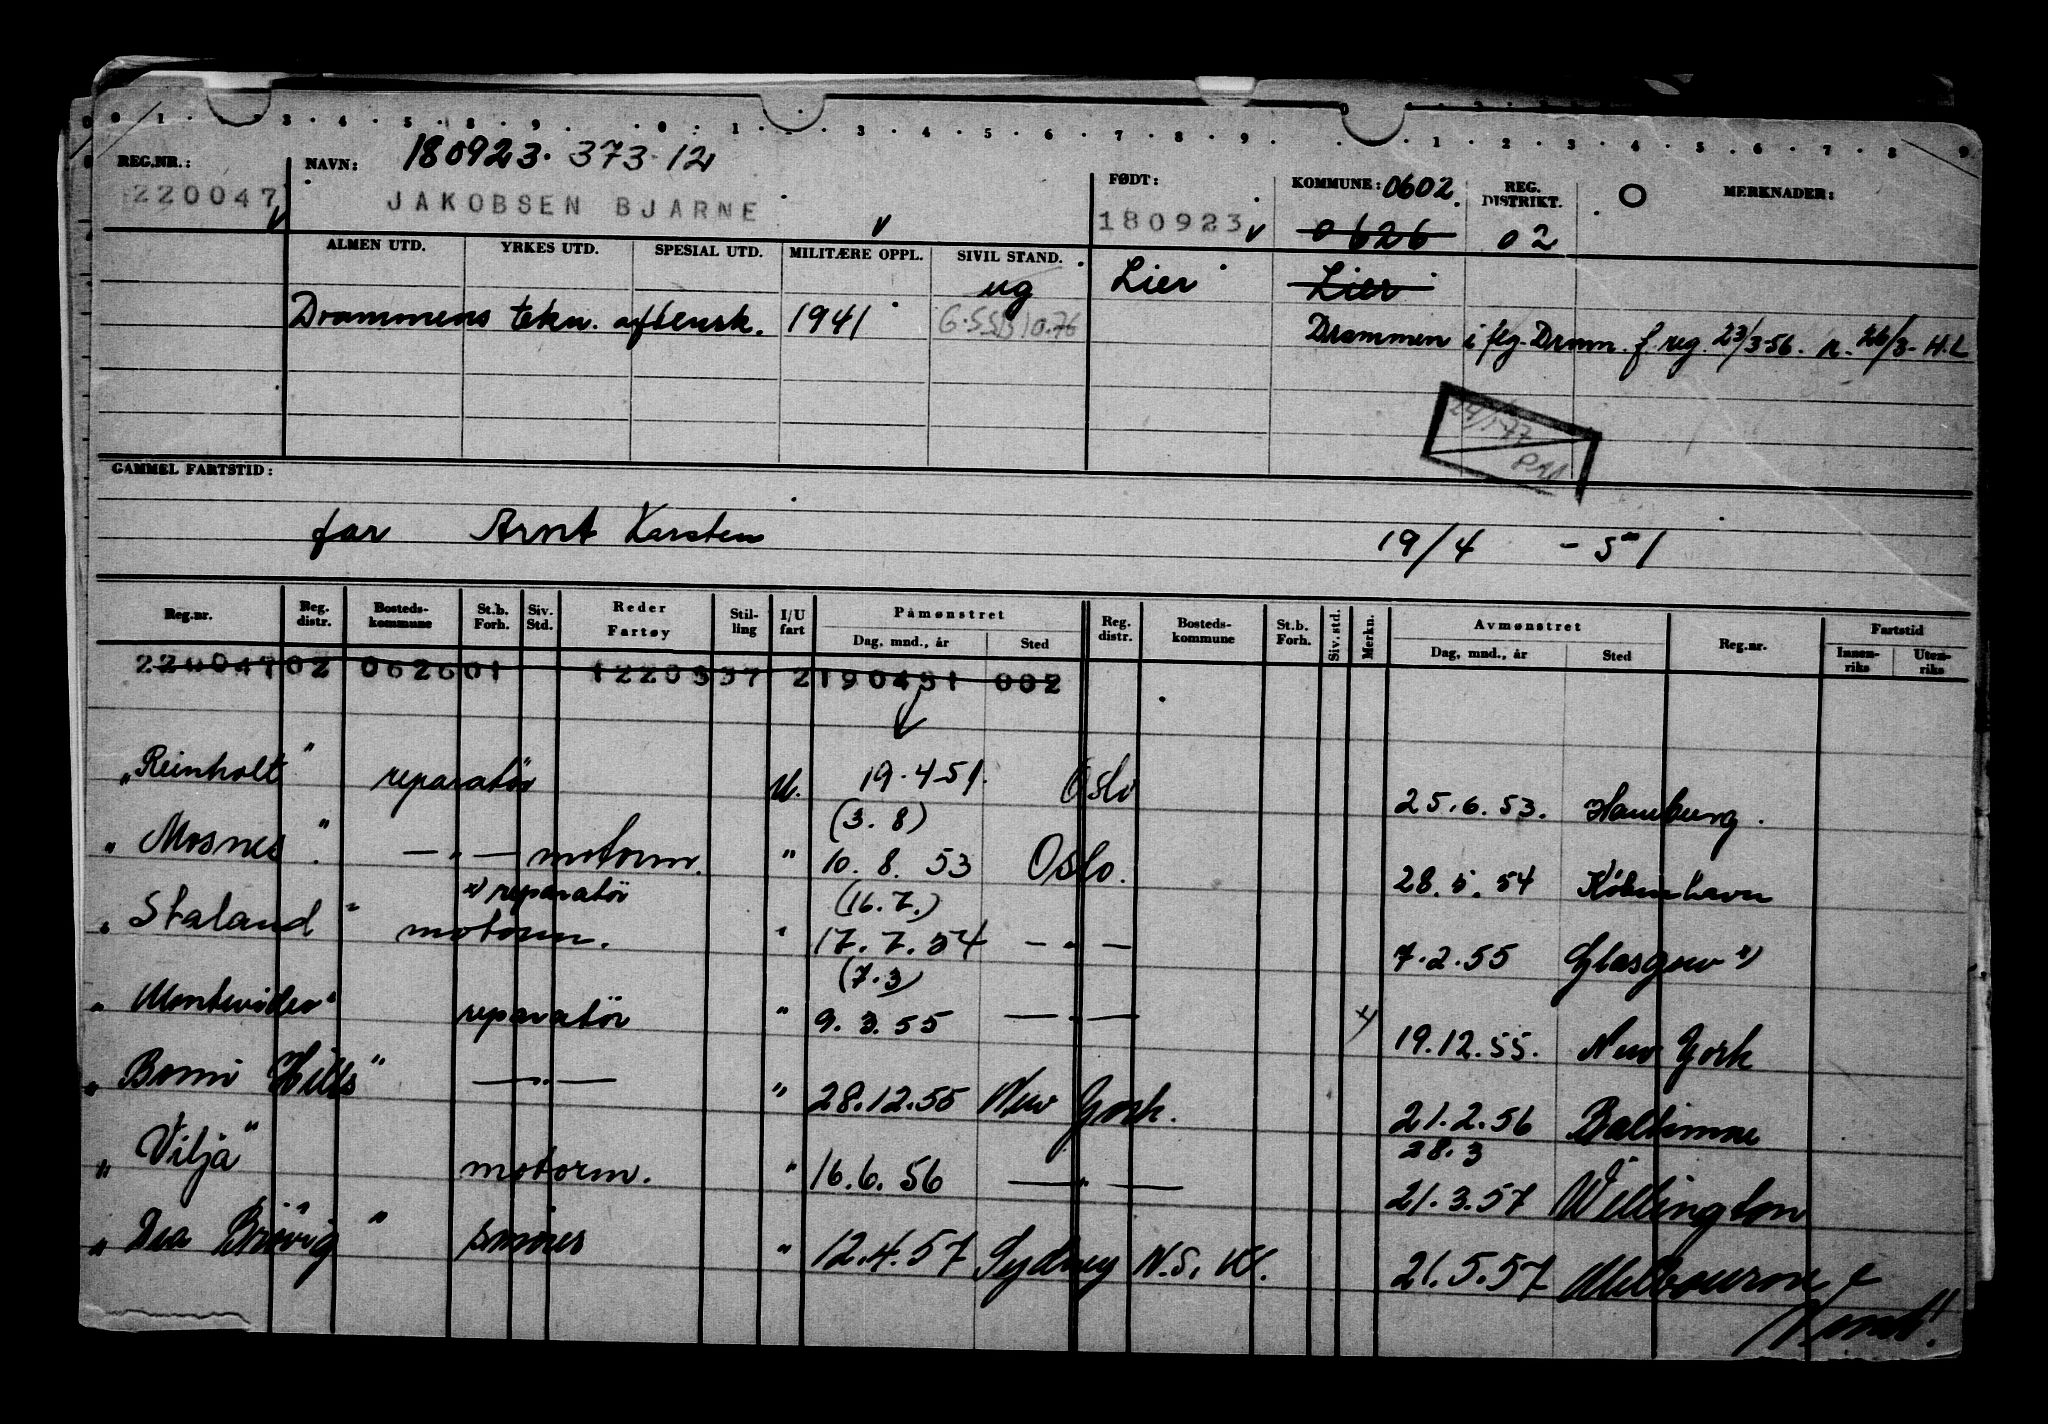 180923. 373 12
REG.NR.: NAVN: FØDT: KOMMUNE: 0602. REG. DISTRIKT. O MERKNADER:
220047 JAKOBSEN BJARNE 180923 0626 02
ALMEN UTD. YRKES UTD. SPESIAL UTD. MILITÆRE OPPL. SIVIL STAND. Lier Lier
ug
Drammens tekn. aftensk. 1941 Drammen i flg. Dram. f. reg. 23/3-56. n. 26/3- H.L
24/1-77
GAMMEL FARTSTID:
far Arnt Karsten 19/4 - 51
Reg.nr. Reg. distr. Bosteds-kommune St.b. Forh. Siv. Std. Reder Fartøy Stil-ling I/U fart Påmønstret Dag, mnd., år Sted Reg. distr. Bosteds-kommune St.b. Forh. Siv. std. Merkn. Avmønstret Dag, mnd., år Sted Reg.nr. Fartstid Innen-riks Uten-riks
220047 02 0626 01 1220557 2 190451 002
"Reinholt" reparatør U. 19.4-51. Oslo 25.6.53. Hamburg.
(3.8)
"Mosnes". — " — motorm. " 10.8.53 Oslo. 28.5.54 København
x) reparatør (16.7.)
"Staland" motorm. " 17.7.54 — " — 7.2.55 Glasgow x)
(7.3)
"Montevideo" reparatør " 9.3.55 — " — x) 19.12.55. New York
"Bomi Hills" — " — " 28.12.55 New York. 21.2.56 Baltimore
28.3
"Vilja" motorm. " 16.6.56 — " — 21.3.57 Wellington
"Dea Brøvig" smører " 12.4.57 Sydney N.S.W. 21.5.57 Melbourne
Vend!